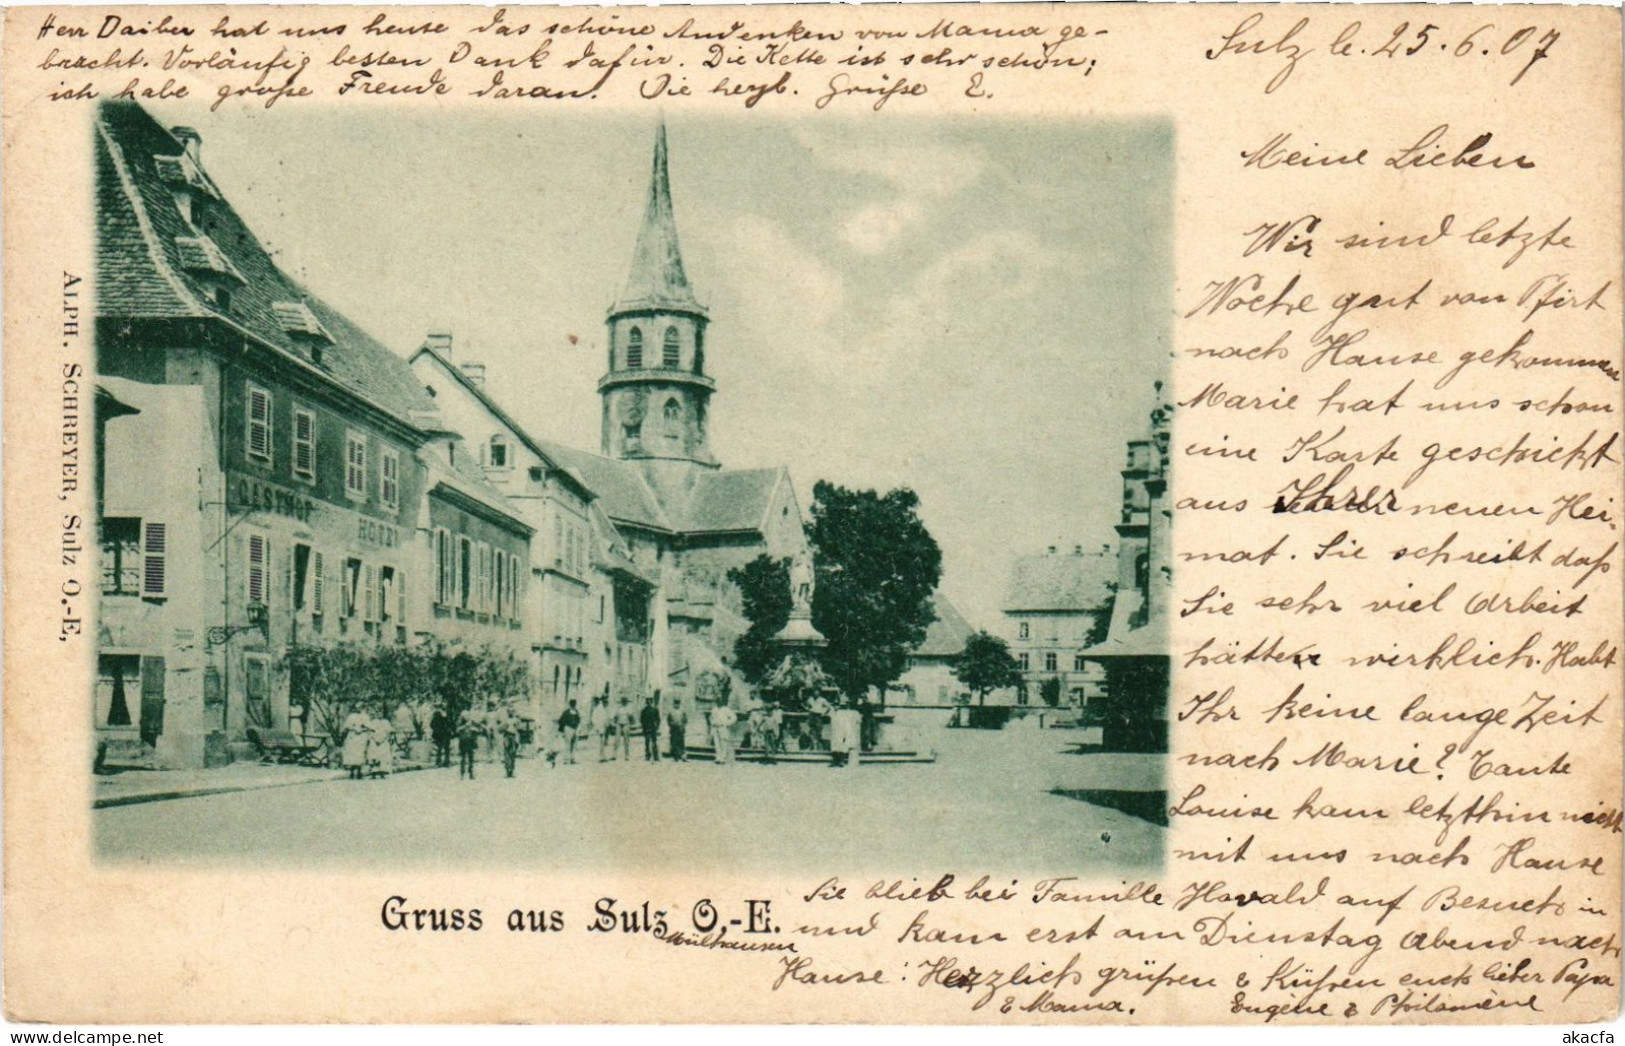 Herr Daiber hat uns heute das schöne Andenken von Mama ge-
bracht. Vorläufig besten Dank dafür. Die Kette ist sehr schön;
ich habe große Freude daran. Die herzl. Grüße E.
Sulz le. 25.6.07
Meine Lieben
Wir sind letzte
Woche gut von Pfirt
nach Hause gekommen
Marie hat uns schon
eine Karte geschickt
aus Ihrer neuen Hei-
mat. Sie schreibt daß
Sie sehr viel Arbeit
hätten wirklich. Habt
Ihr keine lange Zeit
nach Marie? Tante
Louise kam letzthin nicht
mit uns nach Hause
Sie blieb bei Familie Havald auf Besuch in
Mülhausen und kam erst am Dienstag Abend nach
Hause. Herzlich grüßen & Küßen euch lieber Papa
& Mama. Eugène & Philomène
GASTHOF HOTEL
ALPH. SCHREYER, Sulz O.-E,
Gruss aus Sulz O.-E.
akacfa